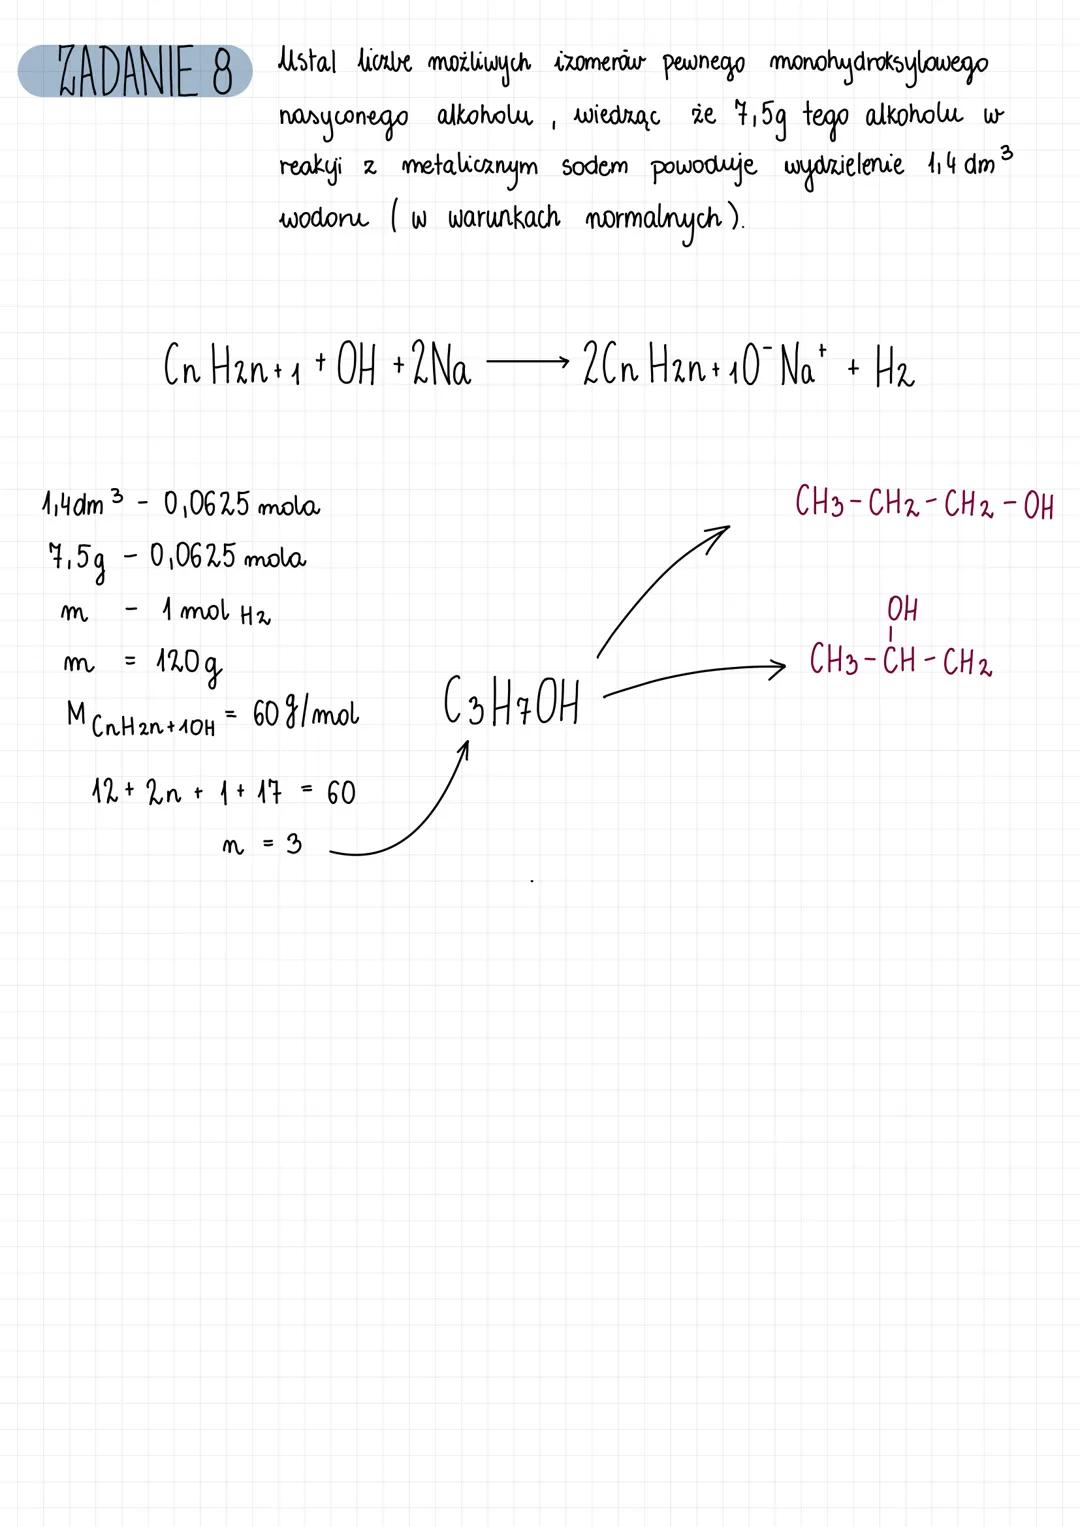 ZADANIE 8
Ustal liczbe możliwych izomerów pewnego monohydroksylowego
nasyconego alkoholu, wiedząc że 7,5g tego alkoholu w
reakyi z metalicznym sodem powoduje wydzielenie 1,4 dm³
wodoru (w warunkach normalnych).
CnH2n+1 + OH + 2Na ⟶ 2CnH2n+1O⁻Na⁺ + H2
1,4dm³ - 0,0625 mola
7,5g - 0,0625 mola
m - 1 mol H2
m = 120g
M CnH2n+1OH = 60g/mol
12 + 2n + 1 + 17 = 60
n = 3
C3H7OH
CH3-CH2-CH2-OH
OH
CH3-CH-CH2